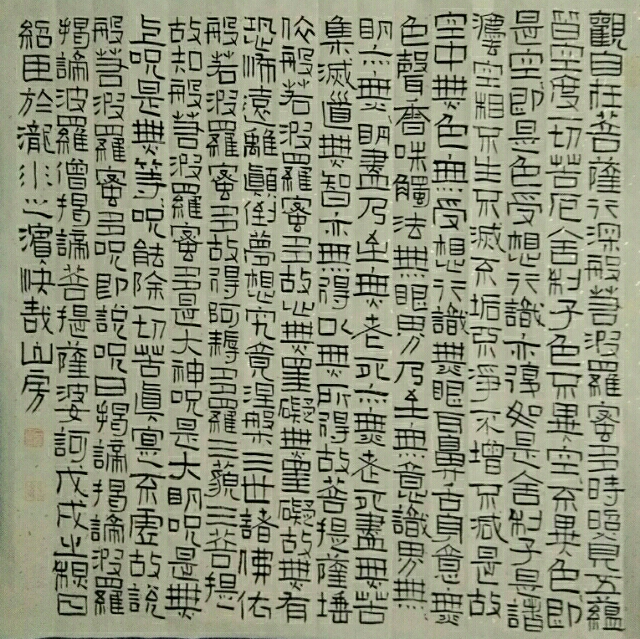 觀自在菩薩行深般若波羅蜜多時照見五蘊
皆空度一切苦厄舍利子色不異空不異色即
是空即是色受想行識亦復如是舍利子是諸
法空相不生不滅不垢不淨不增不減是故
空中無色無受想行識無眼耳鼻舌身意無
色聲香味觸法無眼界乃至無意識界無
明亦無明盡乃至無老死亦無老死盡無苦
集滅道無智亦無得以無所得故菩提薩埵
依般若波羅蜜多故心無罣礙無罣礙故無有
恐怖遠離顛倒夢想究竟涅槃三世諸佛依
般若波羅蜜多故得阿耨多羅三藐三菩提
故知般若波羅蜜多是大神咒是大明咒是無
上咒是無等咒能除一切苦真實不虛故說
般若波羅蜜多咒即說咒曰揭諦揭諦波羅
揭諦波羅僧揭諦菩提薩婆訶戊戌
於瀧水之濱快哉山房